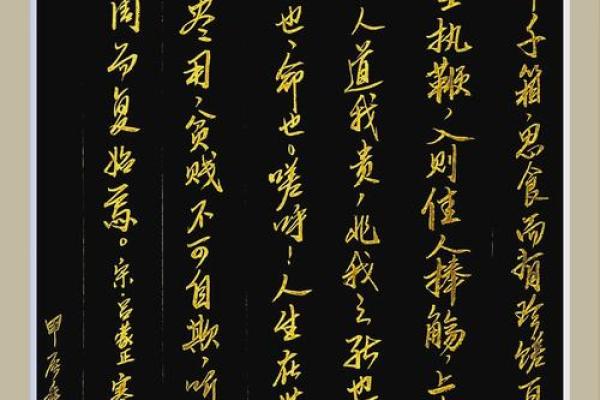 千箱,思食而有珍馐百
执鞭,入则佳人捧觞,上
人道我贵,非我之能也
也,命也。嗟呼!人生在世
尽用,贫贱不可自欺,听
周而复始焉。宋·吕蒙正 寒
甲辰